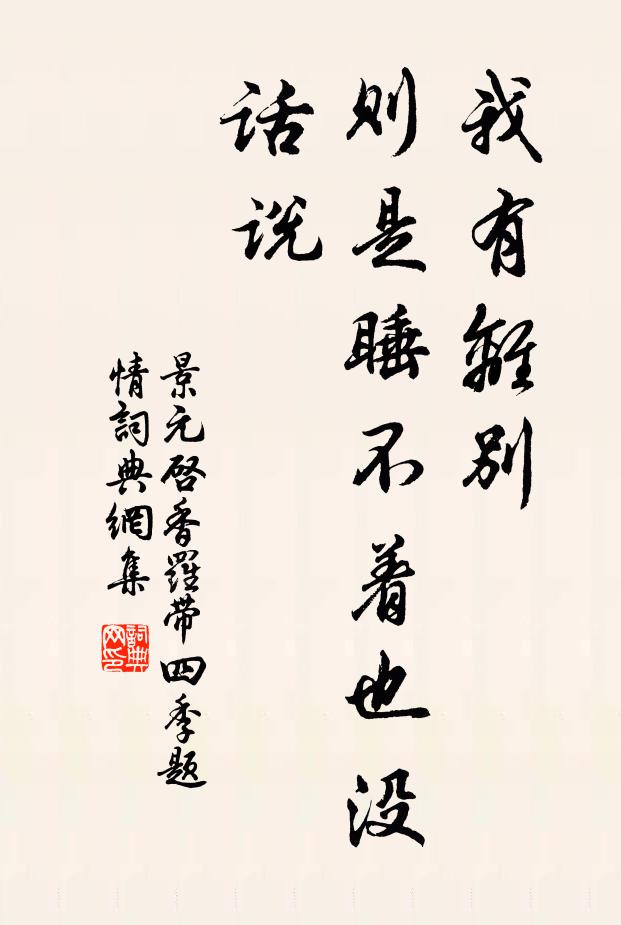 我有離别
则是睡不着也没
话说
景元启香羅带四季題
情詞典網集
詞典
网印